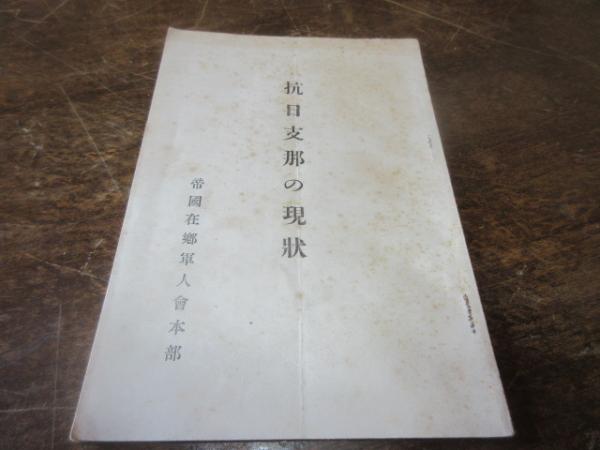 抗日支那の現狀
帝國在鄕軍人會本部